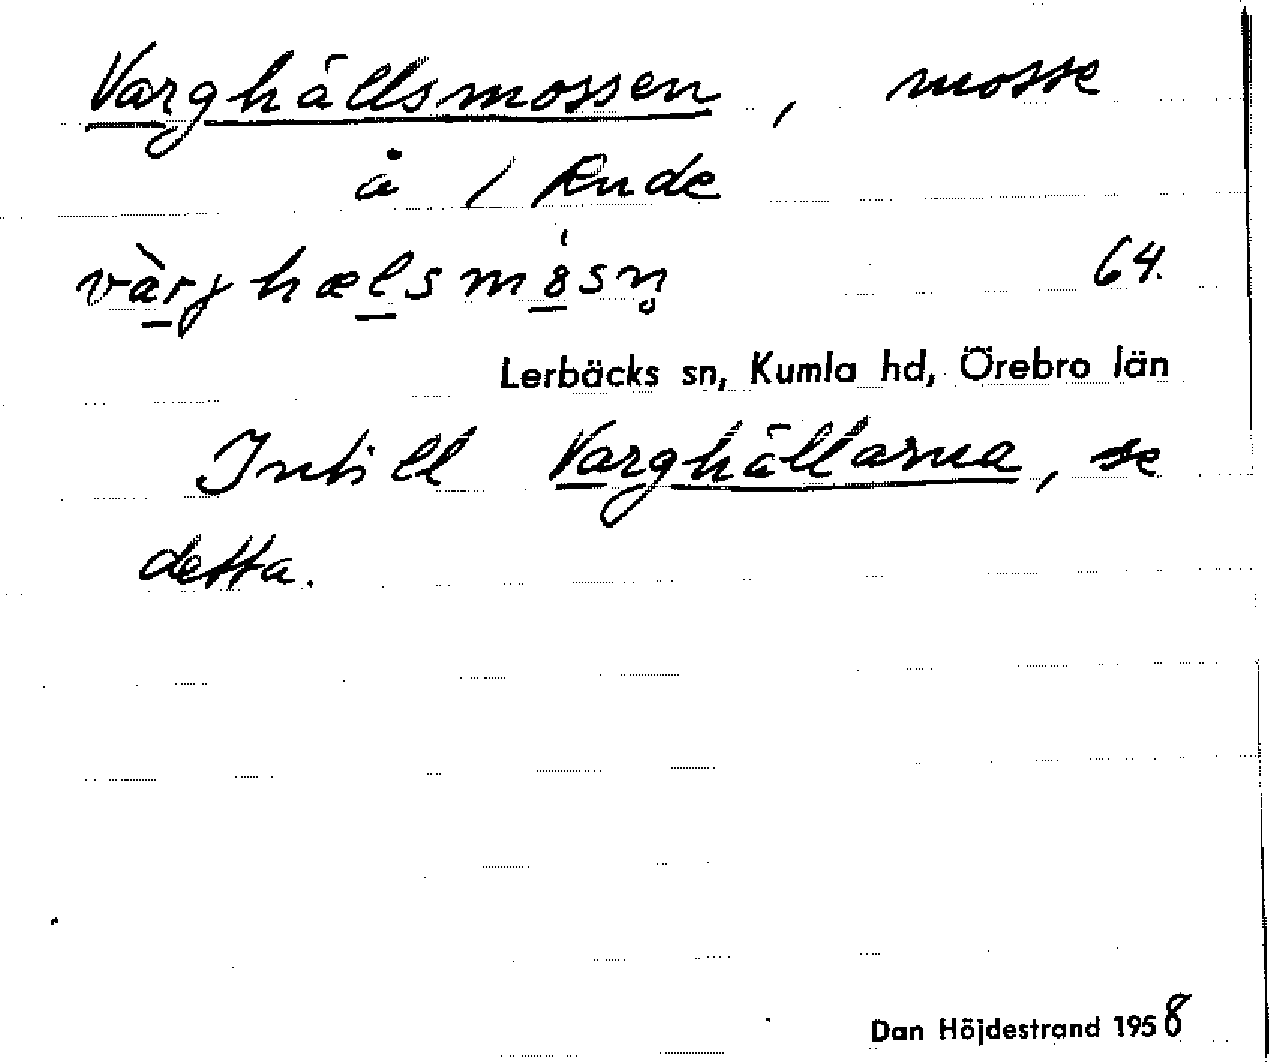 Varghällsmossen, mosse
å / Rude
värjhælsmösn̥ 64.
Lerbäcks sn, Kumla hd, Örebro län
Intill Varghällarna, se
detta.
Dan Höjdestrand 1958